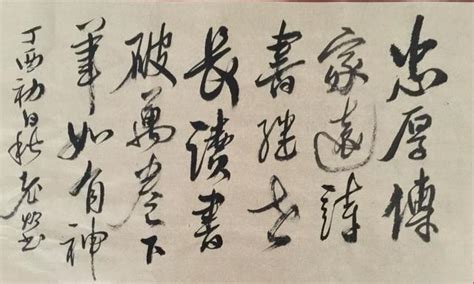 忠厚傳
家遠詩
書繼世
長讀書
破萬卷下
筆如有神
丁酉初日秋老